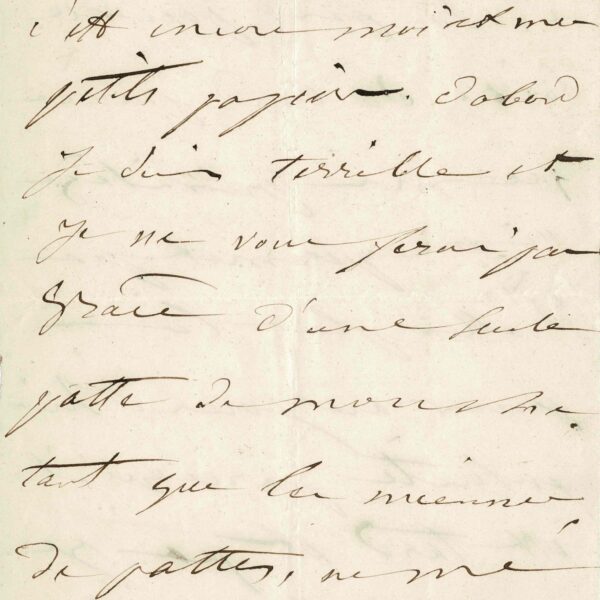 c'est encore moi et mes
petits papiers. d'abord
je suis terrible et
je ne vous ferai pas
grâce d'une seule
patte de mouche.
tant que les miennes
de pattes, ne me